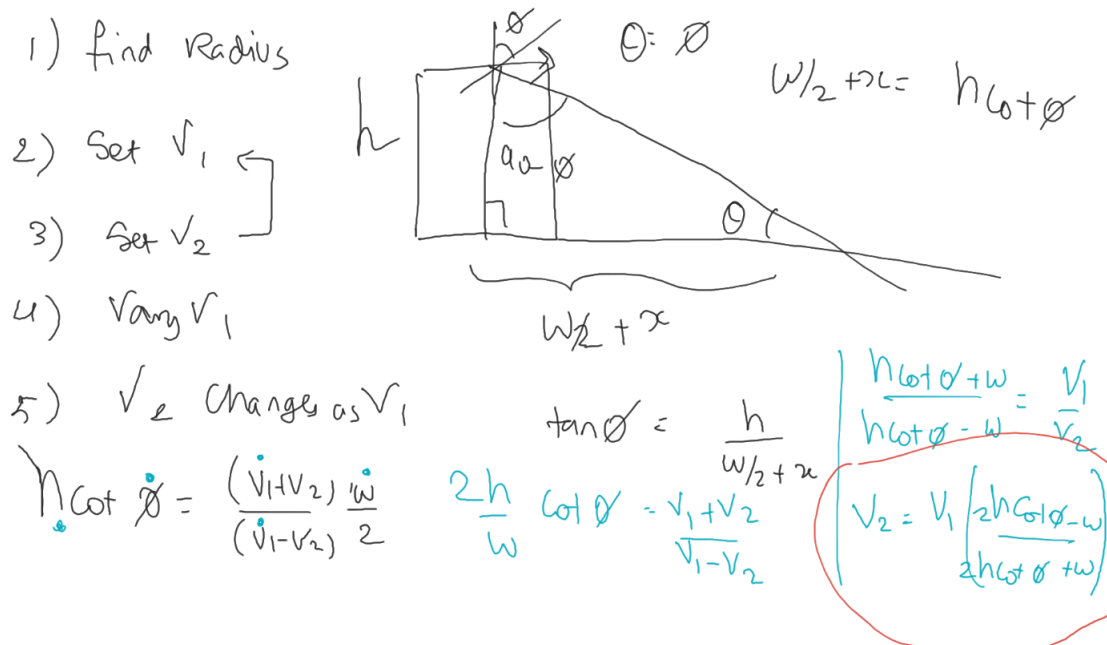 1) find Radius
2) Set V₁
3) Set V₂
4) Vary V₁
5) V₂ changes as V₁
h cot ø = (V₁+V₂)/(V₁-V₂) w/2
ø
θ = ø
W/2 + x = h cot ø
h
90 - ø
θ
W/2 + x
tan ø = h/(W/2 + x)
2h/w cot ø = (V₁+V₂)/(V₁-V₂)
(h cot ø + w)/(h cot ø - w) = V₁/V₂
V₂ = V₁ ((2h cot ø - w)/(2h cot ø + w))